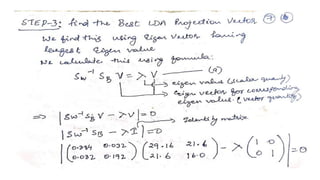 STEP-3: find the Best LDA Projection Vector 7 6
We find this using Eigen Vector having
largest Eigen value
We calculate this using formula:
Sw⁻¹ SB V = λ V — (9)
→ eigen value (scalar quantity)
→ Eigen vector for corresponding
eigen value (vector quantity)
⇒ |Sw⁻¹SB V - λV| = 0
→ Identity matrix
|Sw⁻¹ SB - λI| = 0
|(0.384 0.032) (29.16 21.6) - λ (1 0)| = 0
|(0.032 0.192) (21.6 16.0) (0 1)|